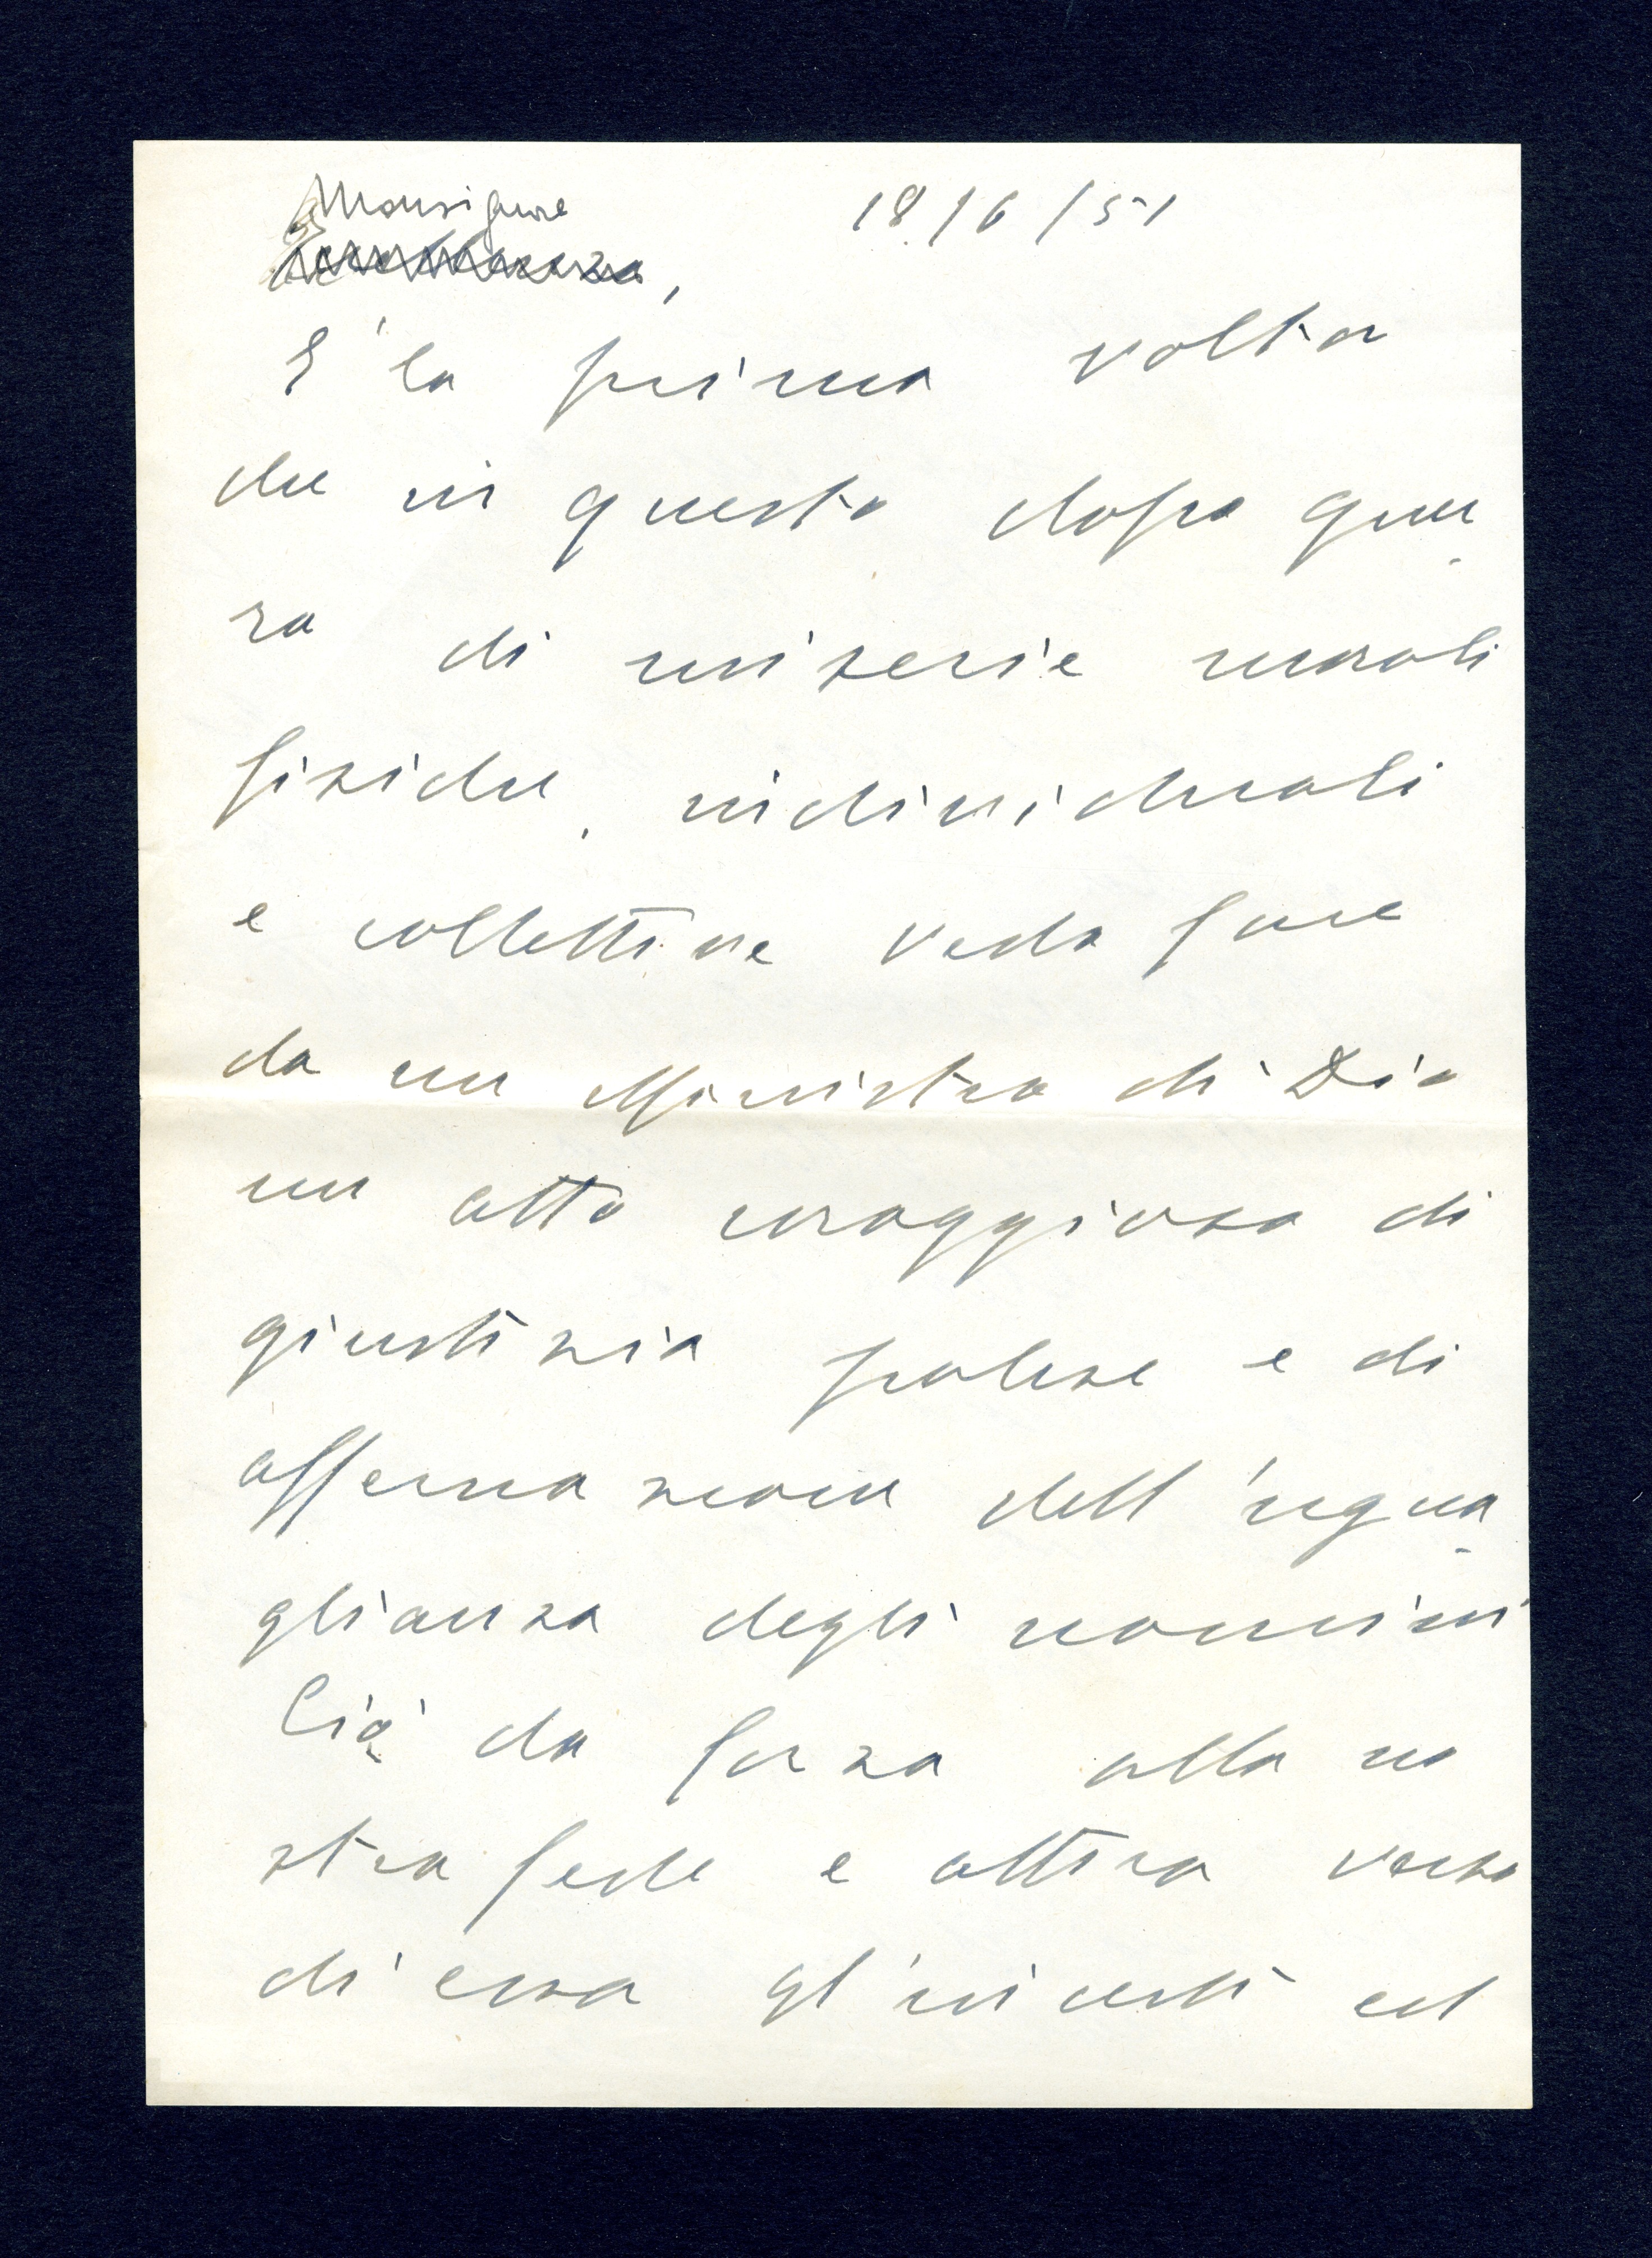 Monsignore 18/6/51
Eccellenza,
E' la prima volta
che in questo dopo guer
ra di miserie morali
fisiche, individuali
e collettive vedo fare
da un Ministro di Dio
un atto coraggioso di
giustizia palese e di
affermazione dell'ugua
glianza degli uomini
Ciò da forza alla no
stra fede e attira verso
di essa gl'incerti ed